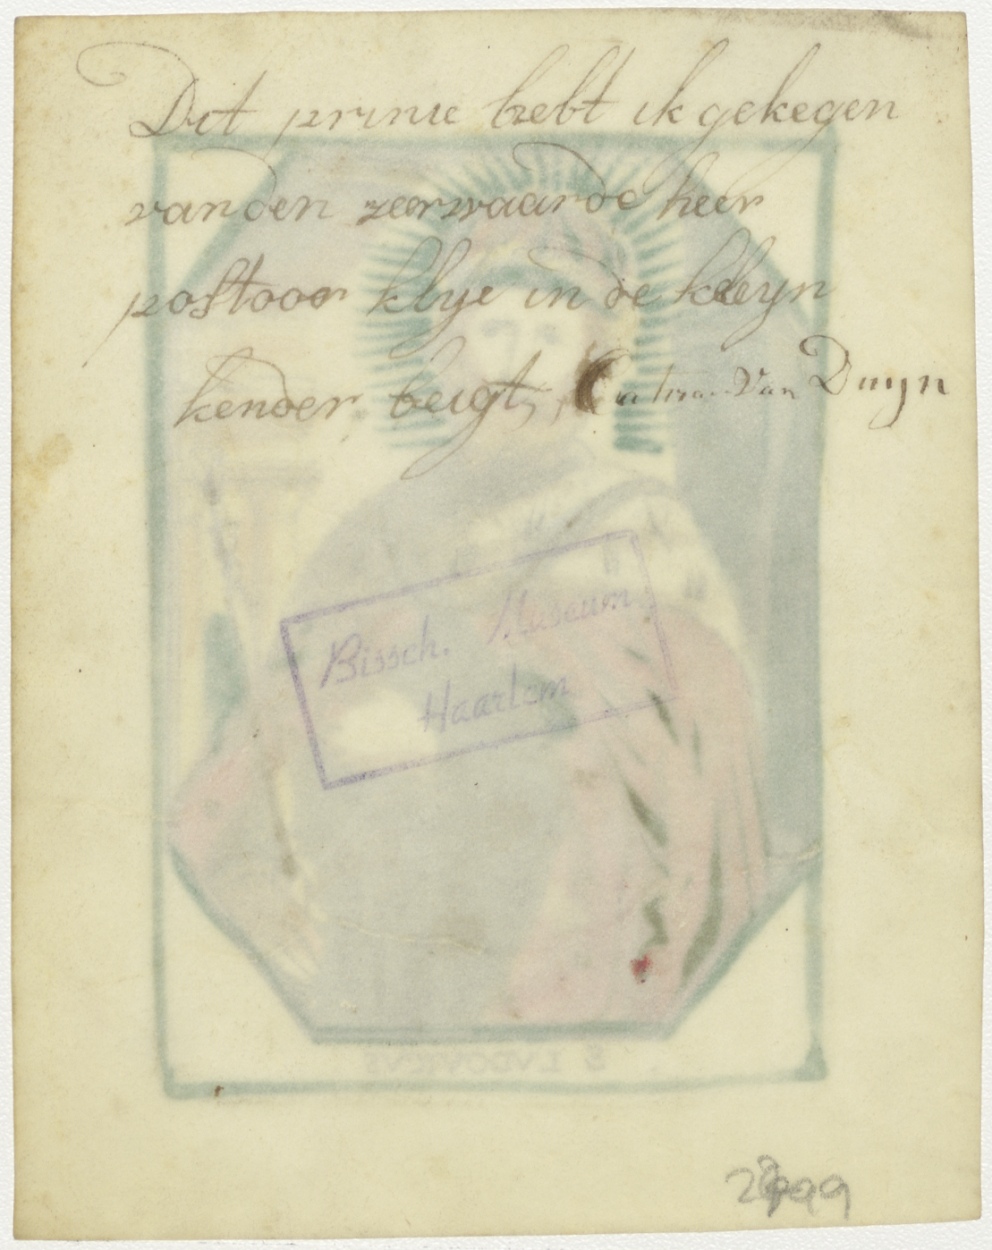 Dit prinie hebt ik gekegen
van den zeerwaarde heer
postoor klye in de kleyn
kender beigt, Van Duyn
Bissch. Museum
Haarlem
S LVDOVICVS